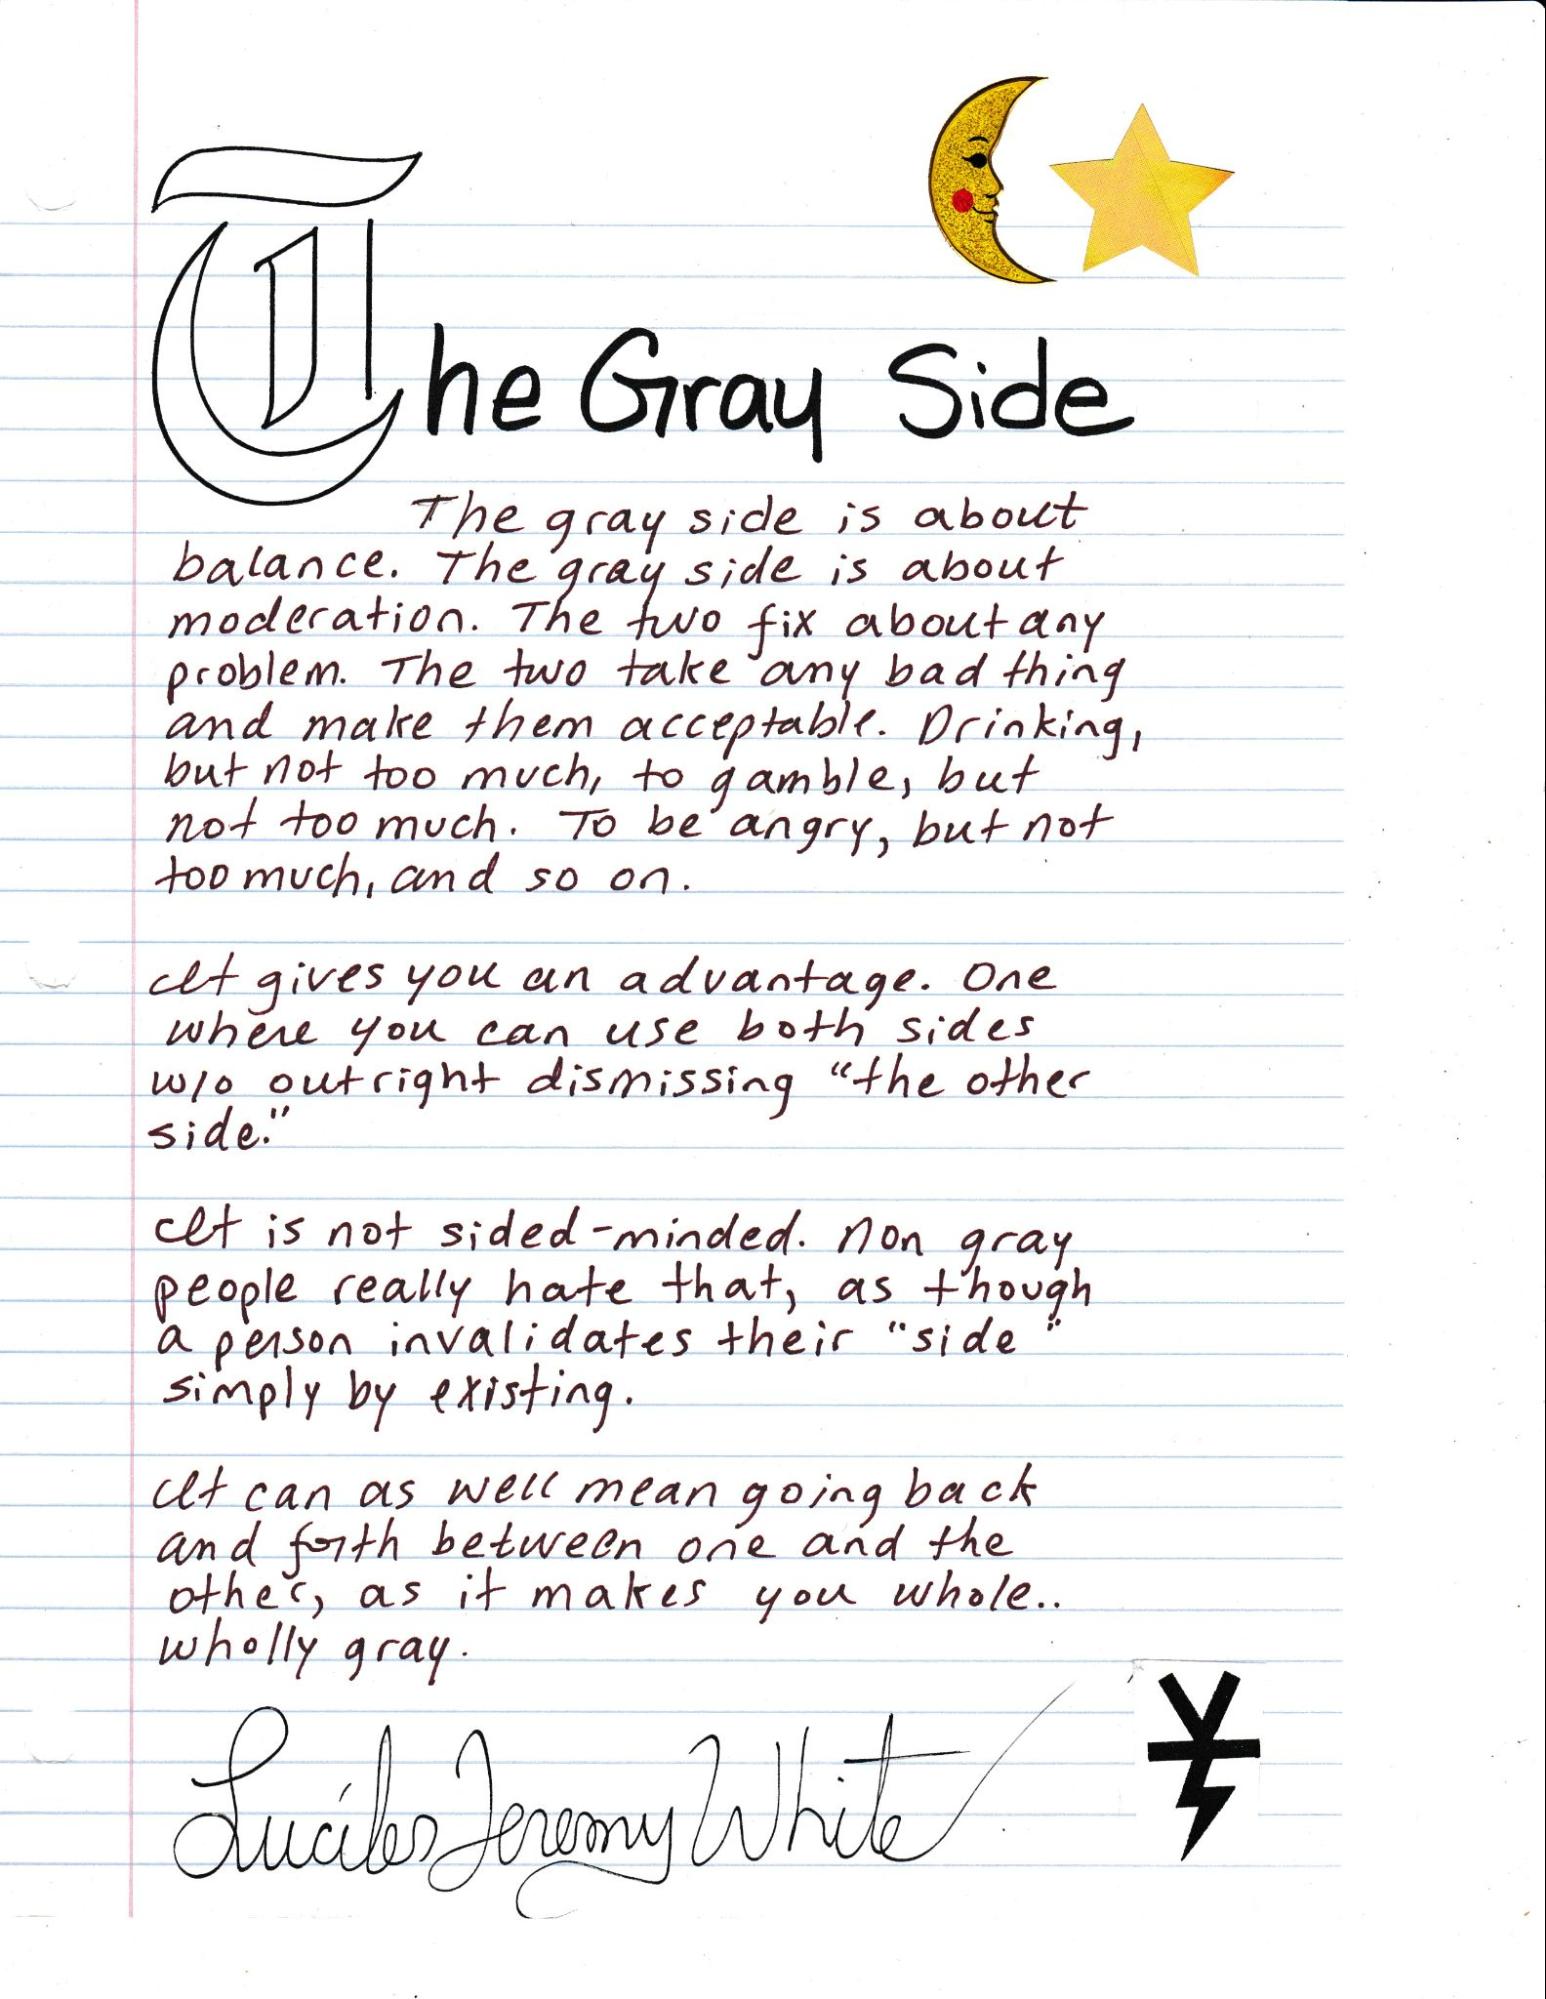 The Gray Side
The gray side is about
balance. The gray side is about
moderation. The two fix about any
problem. The two take any bad thing
and make them acceptable. Drinking,
but not too much, to gamble, but
not too much. To be angry, but not
too much, and so on.
It gives you an advantage. One
where you can use both sides
w/o outright dismissing "the other
side."
It is not sided-minded. Non gray
people really hate that, as though
a person invalidates their "side"
simply by existing.
It can as well mean going back
and forth between one and the
other, as it makes you whole..
wholly gray.
Jeremy White